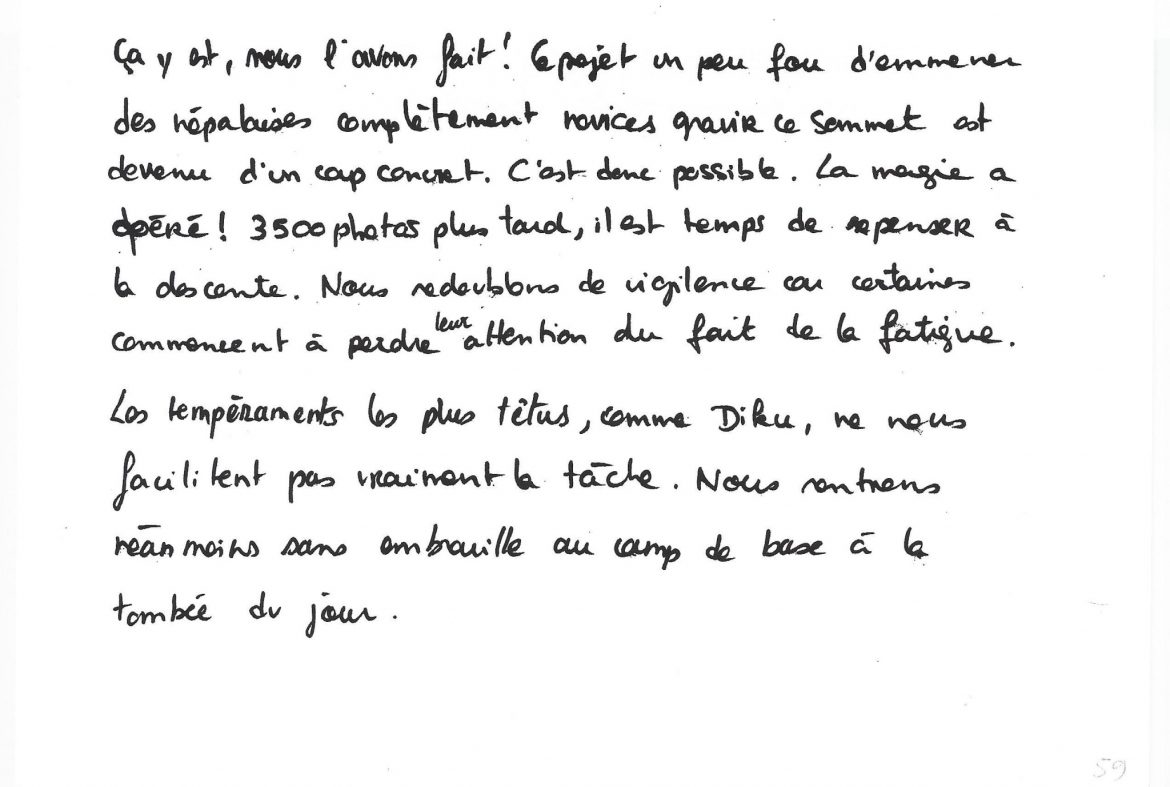 Ça y est, nous l'avons fait ! Ce projet un peu fou d'emmener
des népalaises complètement novices gravir ce sommet est
devenu d'un coup concret. C'est donc possible. La magie a
opéré ! 3500 photos plus tard, il est temps de repenser à
la descente. Nous redoublons de vigilence car certaines
commencent à perdre leur attention du fait de la fatigue.
Les tempéraments les plus têtus, comme Diku, ne nous
facilitent pas vraiment la tâche. Nous rentrons
néanmoins sans embrouille au camp de base à la
tombée du jour.
59